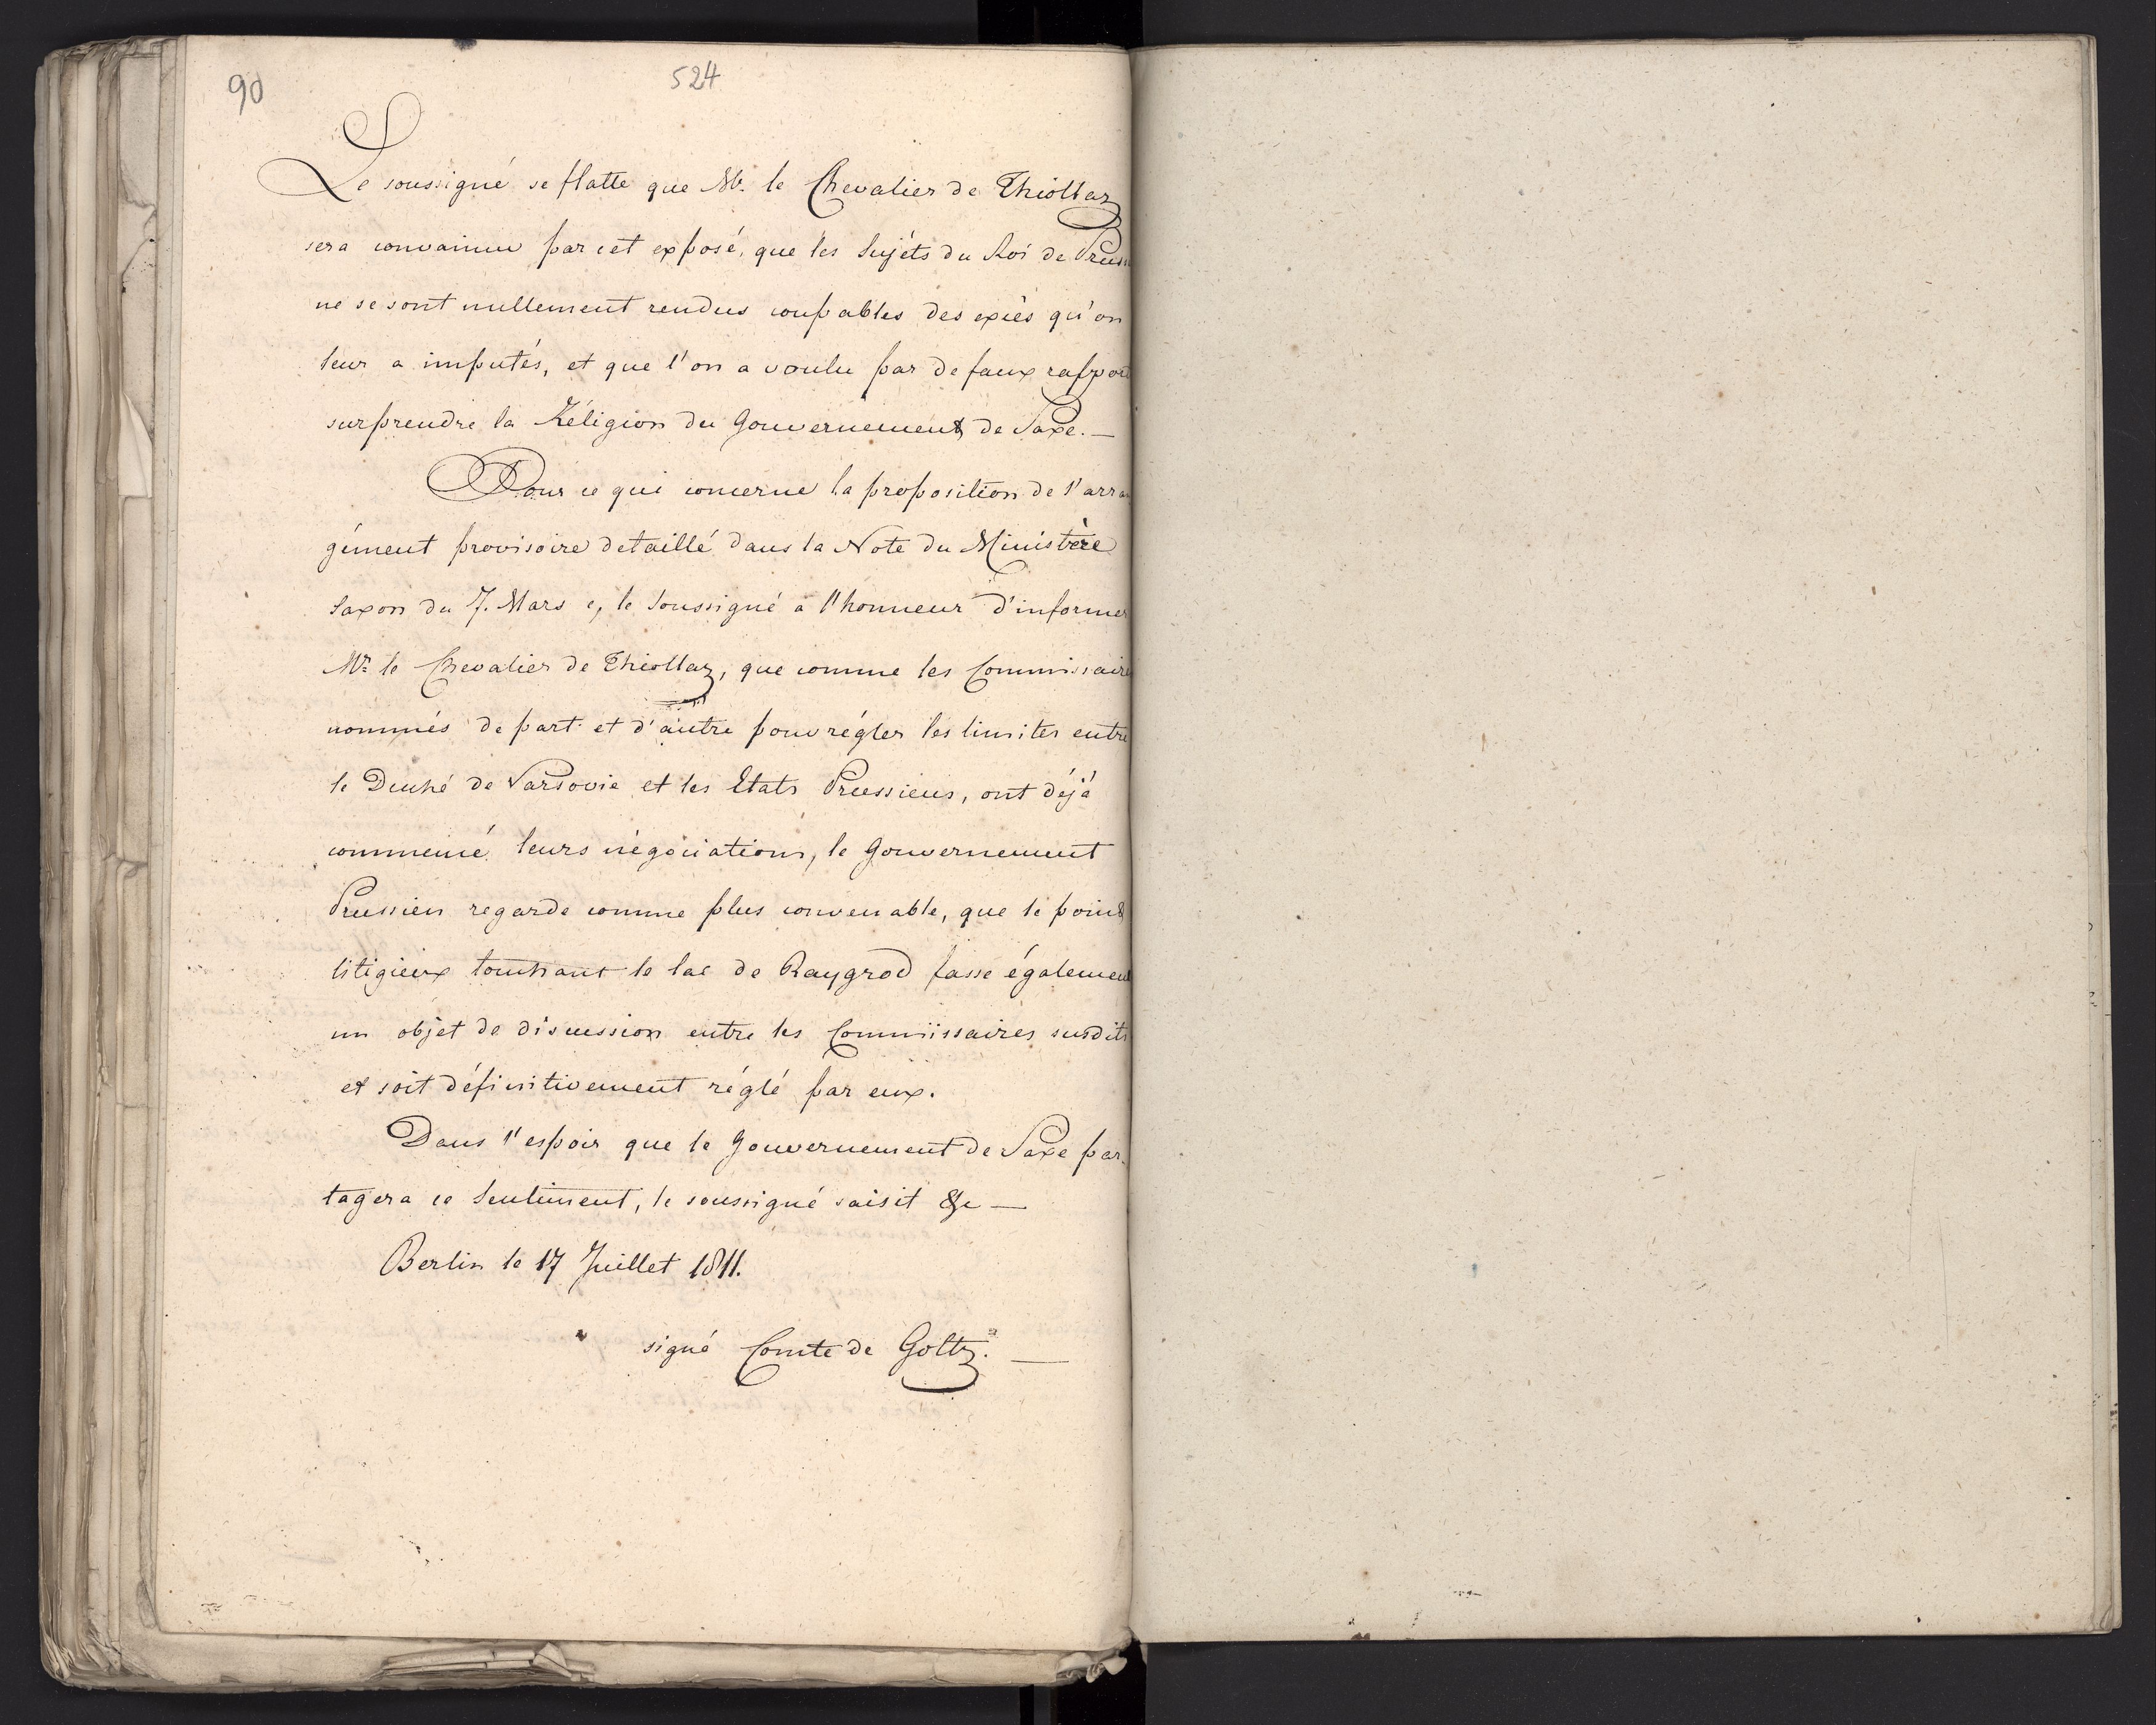 90
524
Le soussigné se flatte que Mr. le Chevalier de Thiollaz
sera convaincu par cet exposé, que les Sujéts du Roi de Pruss
ne se sont nullement rendus coupables des excès qu'on
leur a imputés, et que l'on a voulu par de faux rapport
surprendre la Réligion du Gouvernement de Saxe. —
Pour ce qui concerne la proposition de l'arran
gément provisoire detaillé dans la Note du Ministère
Saxon du 7. Mars c, le Soussigné a l'honneur d'informer
Mr. le Chevalier de Thiollaz, que comme les Commissaire
nommés de part et d'autre pour régler les limites entre
le Duché de Varsovie et les Etats Prussiens, ont déjà
commencé leurs négociations, le Gouvernement
Prussien regarde comme plus convenable, que le point
litigieux touchant le lac de Raygrod fasse également
un objet de discussion entre les Commiissaires susdits
et soit définitivement réglé par eux.
Dans l'espoir que le Gouvernement de Saxe par-
tagera ce Sentiment, le soussigné saisit &c —
Berlin le 17 Juillet 1811.
signé Comte de Goltz. —